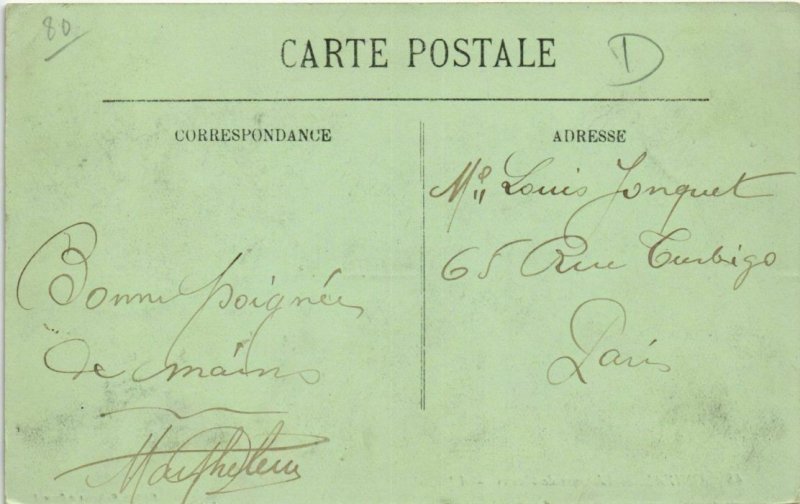 80
D
CARTE POSTALE
CORRESPONDANCE
Bonne poignée
de mains
ADRESSE
Louis Jonquet
65 Rue Turbigo
Paris